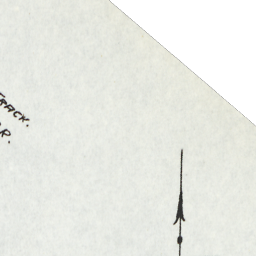 TRACK.
R.